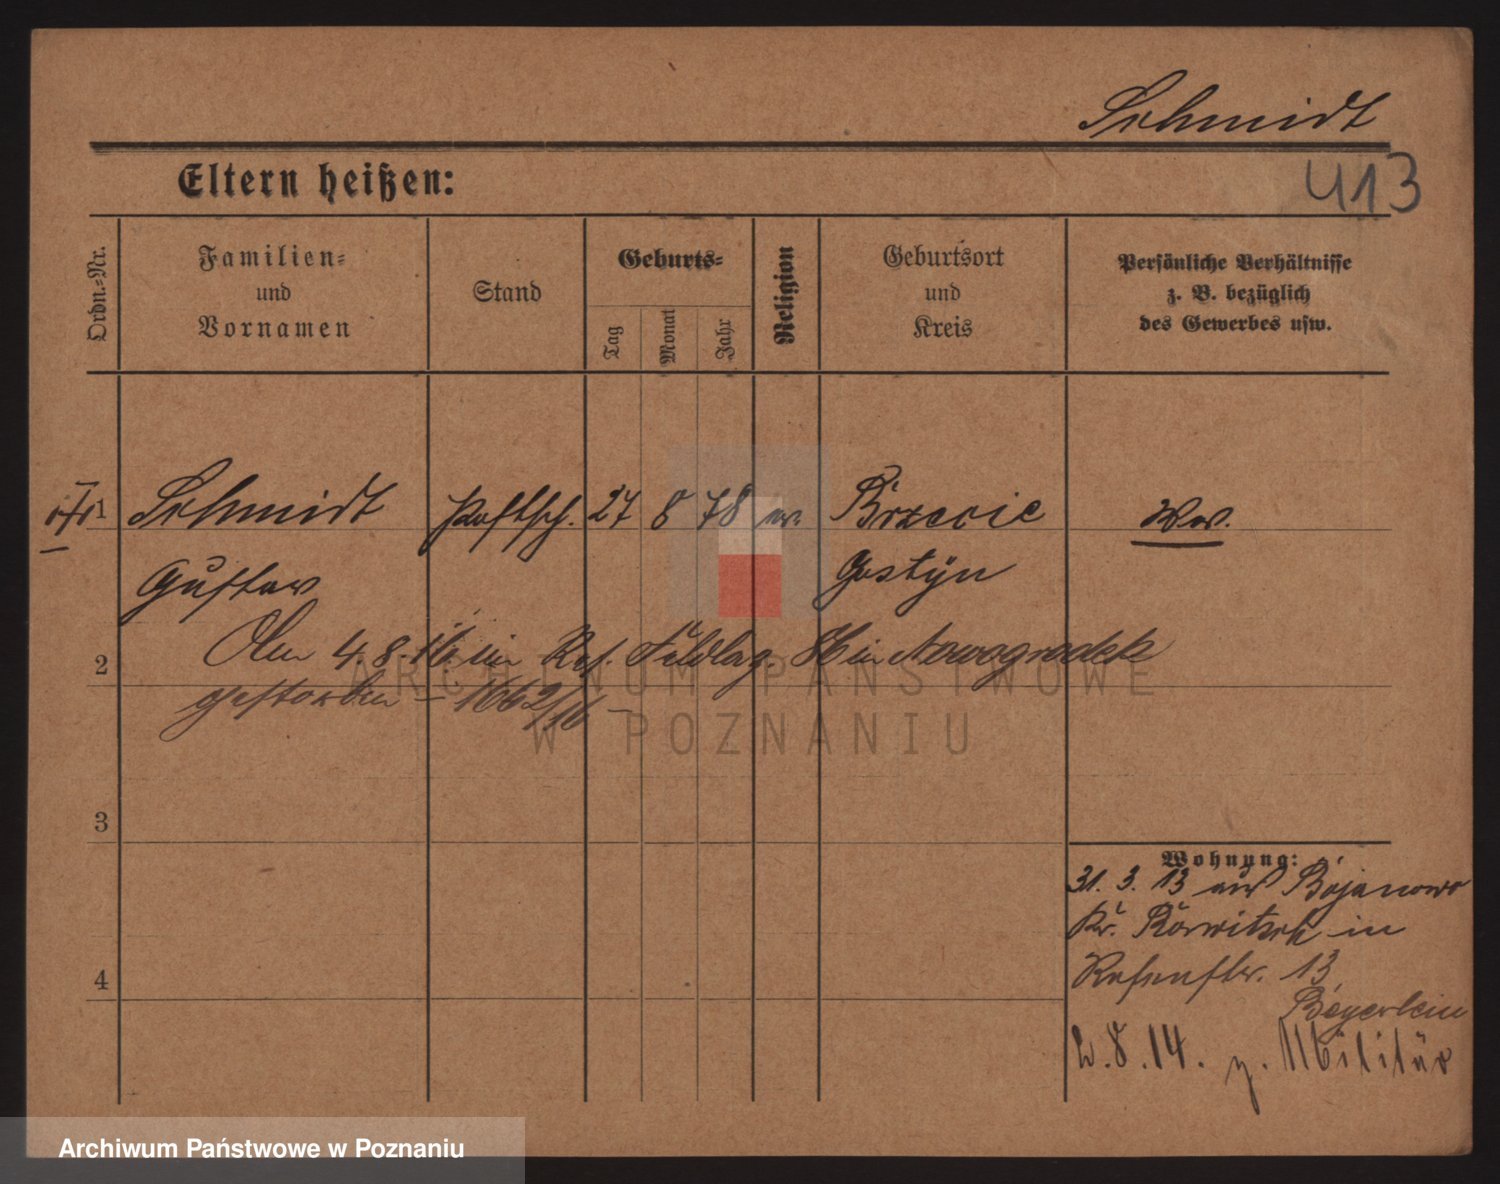 Schmidt
413
Eltern heißen:
Ordn.-Nr.
Familien-
und
Vornamen
Stand
Geburts-
Tag
Monat
Jahr
Religion
Geburtsort
und
Kreis
Persönliche Verhältnisse
z. B. bezüglich
des Gewerbes usw.
1 Schmidt 27 8 78 ev. Brzecie Ww.
Gustav Gostÿn
2 Am 4. 8. 16 im Res. Feldlaz. in Nowogrodek
gestorben – 1662/16 –
3
4
Wohnung:
31. 3. 13 aus Bojanowo
Kr. Rawitsch in
Rosenstr. 13
Beyerlein
2. 8. 14. z. Militär
ARCHIWUM PAŃSTWOWE
W POZNANIU
Archiwum Państwowe w Poznaniu